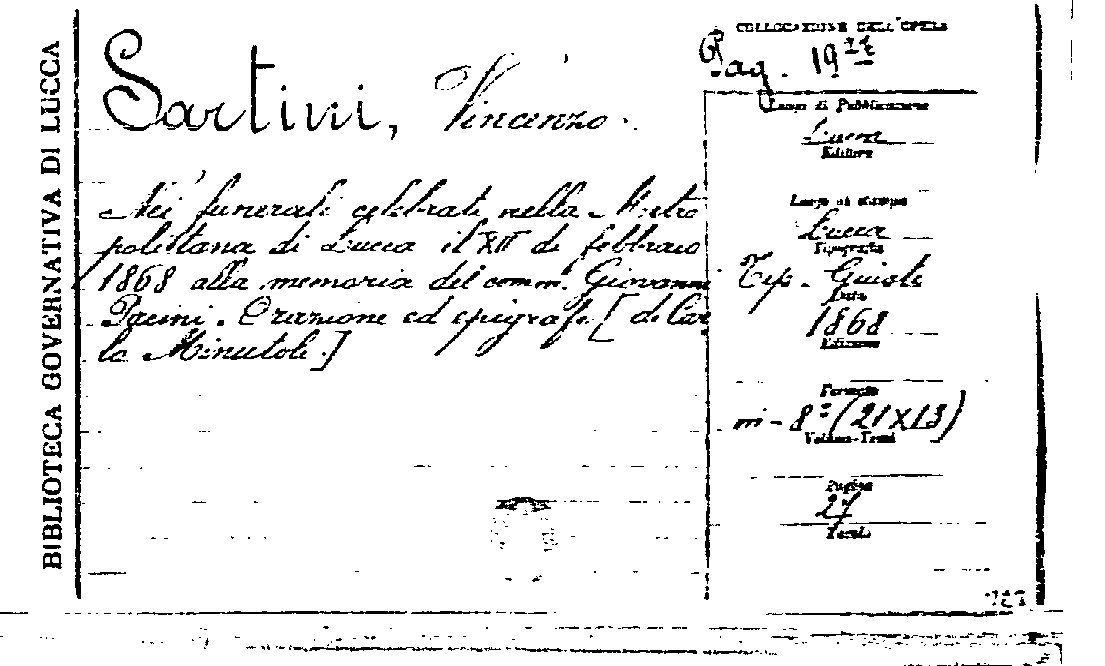 BIBLIOTECA GOVERNATIVA DI LUCCA
Sartini, Vincenzo.
Nei funerali celebrati nella Metro
politana di Lucca il XII di febbraio
1868 alla memoria del comm. Giovanni
Pacini. Orazione ed epigrafe [di Car
lo Minutoli.]
COLLOCAZIONE DELL'OPERA
Pag. 19
Luogo di Pubblicazione
Lucca
Editore
Luogo di stampa
Lucca
Tipografia
Tip. Giusti
Data
1868
Edizione
Formato
in-8º (21X13)
Volume-Tomi
Pagine
27
Tavole